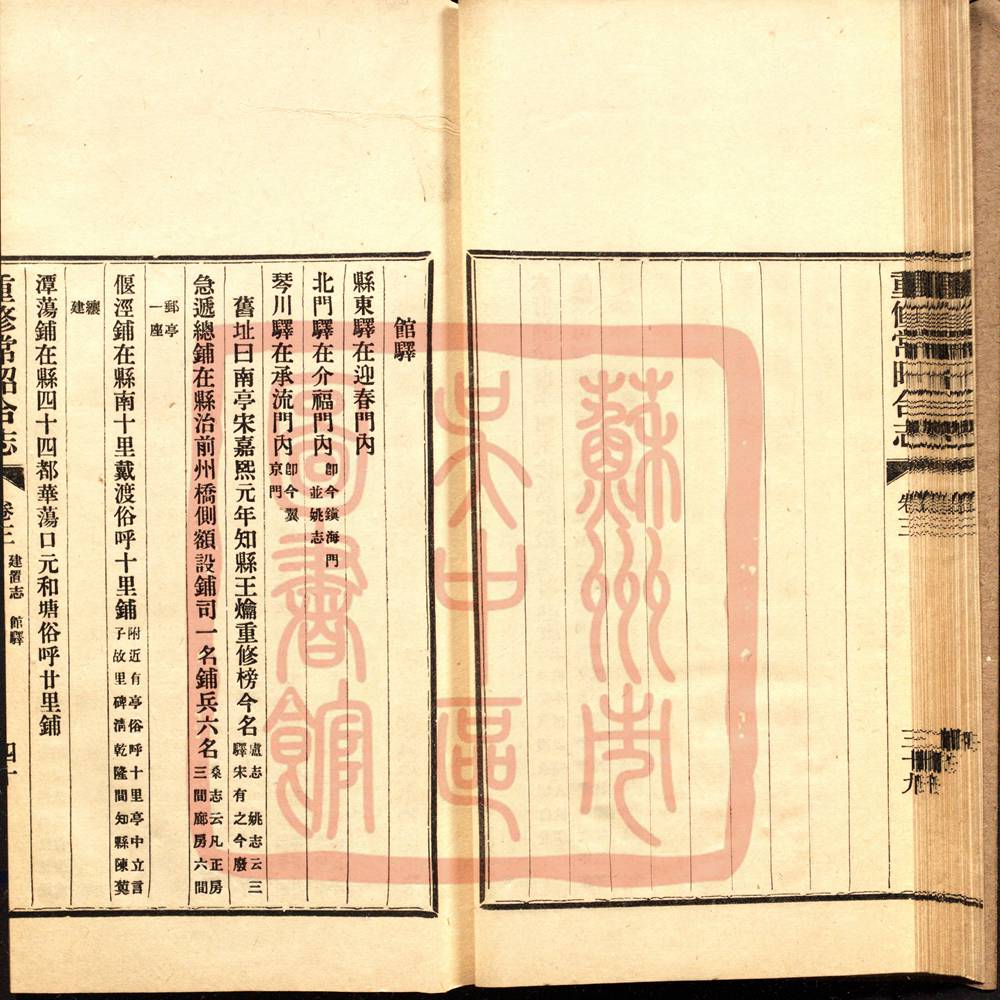 重修常昭合志
卷三
三十九
館驛
縣東驛在迎春門內
北門驛在介福門內 卽今鎭海門並姚志
琴川驛在承流門內 卽今翼京門
舊址曰南亭宋嘉熙元年知縣王爚重修榜今名 盧志 姚志云三驛宋有之今廢
急遞總鋪在縣治前州橋側額設鋪司一名鋪兵六名 桑志云凡正房三間廊房六間
郵亭一座
偃涇鋪在縣南十里戴渡俗呼十里鋪 附近有亭俗呼十里亭中立言子故里碑淸乾隆間知縣陳蓂
纕建
潭蕩鋪在縣四十四都華蕩口元和塘俗呼廿里鋪
重修常昭合志
卷三 建置志 館驛
四十
蘇州市
吳中區
圖書館